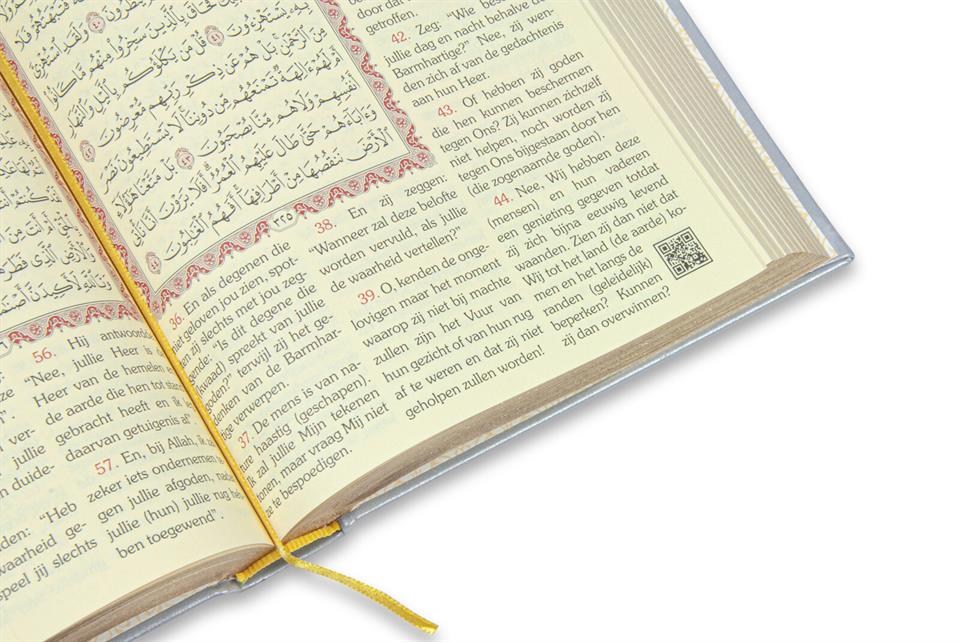 فَتَبْهَتُهُمْ فَلَا
يُنْظَرُونَ ٤٠ وَلَقَدِ اسْتُهْزِئَ
فَحَاقَ بِالَّذِينَ سَخِرُوا مِنْهُمْ مَا كَانُوا
يَسْتَهْزِؤُنَ ٤١ قُلْ مَنْ يَكْلَؤُكُمْ بِالَّيْلِ وَالنَّهَارِ
مِنَ الرَّحْمٰنِ بَلْ هُمْ عَنْ ذِكْرِ رَبِّهِمْ مُعْرِضُونَ ٤٢
اَمْ لَهُمْ اٰلِهَةٌ تَمْنَعُهُمْ مِنْ دُونِنَا لَا يَسْتَطِيعُونَ نَصْرَ
اَنْفُسِهِمْ وَلَا هُمْ مِنَّا يُصْحَبُونَ ٤٣ بَلْ مَتَّعْنَا هٰؤُلَاءِ
وَاٰبَاءَهُمْ حَتّٰى طَالَ عَلَيْهِمُ الْعُمُرُ اَفَلَا يَرَوْنَ اَنَّا نَأْتِي
الْاَرْضَ نَنْقُصُهَا مِنْ اَطْرَافِهَا اَفَهُمُ الْغَالِبُونَ ٤٤
٣٢٥
36. En als degenen die
niet geloven jou zien, spot-
ten zij slechts met jou zeg-
gende: "Is dit degene die
(kwaad) spreekt van jullie
goden?" terwijl zij het ge-
denken van de Barmhar-
tige verwerpen.
37. De mens is van na-
ture haastig (geschapen).
Ik zal jullie Mijn tekenen
tonen, maar vraag Mij niet
ze te bespoedigen.
38. En zij zeggen:
"Wanneer zal deze belofte
worden vervuld, als jullie
de waarheid vertellen?"
39. O, kenden de onge-
lovigen maar het moment
waarop zij niet bij machte
zullen zijn het Vuur van
hun gezicht of van hun rug
af te weren en dat zij niet
geholpen zullen worden!
door dat
getroffen.
42. Zeg: "Wie besc
jullie dag en nacht behalve de
Barmhartige?" Nee, zij wen-
den zich af van de gedachtenis
aan hun Heer.
43. Of hebben zij goden
die hen kunnen beschermen
tegen Ons? Zij kunnen zichzelf
niet helpen, noch worden zij
tegen Ons bijgestaan door hen
(die zogenaamde goden).
44. Nee, Wij hebben deze
(mensen) en hun vaderen
een genieting gegeven totdat
zij zich bijna eeuwig levend
waanden. Zien zij dan niet dat
Wij tot het land (de aarde) ko-
men en het langs de
randen (geleidelijk)
beperken? Kunnen
zij dan overwinnen?
ze
".
ver-
jullie
n duide-
den: "Heb
waarheid ge-
speel jij slechts
56. Hij antwoordde
"Nee, jullie Heer is d
Heer van de hemelen en
de aarde die hen tot stan
gebracht heeft en ik be
daarvan getuigenis af".
57. En, bij Allah, ik z
zeker iets ondernemen te
gen jullie afgoden, nada
jullie (hun) jullie rug heb
ben toegewend".